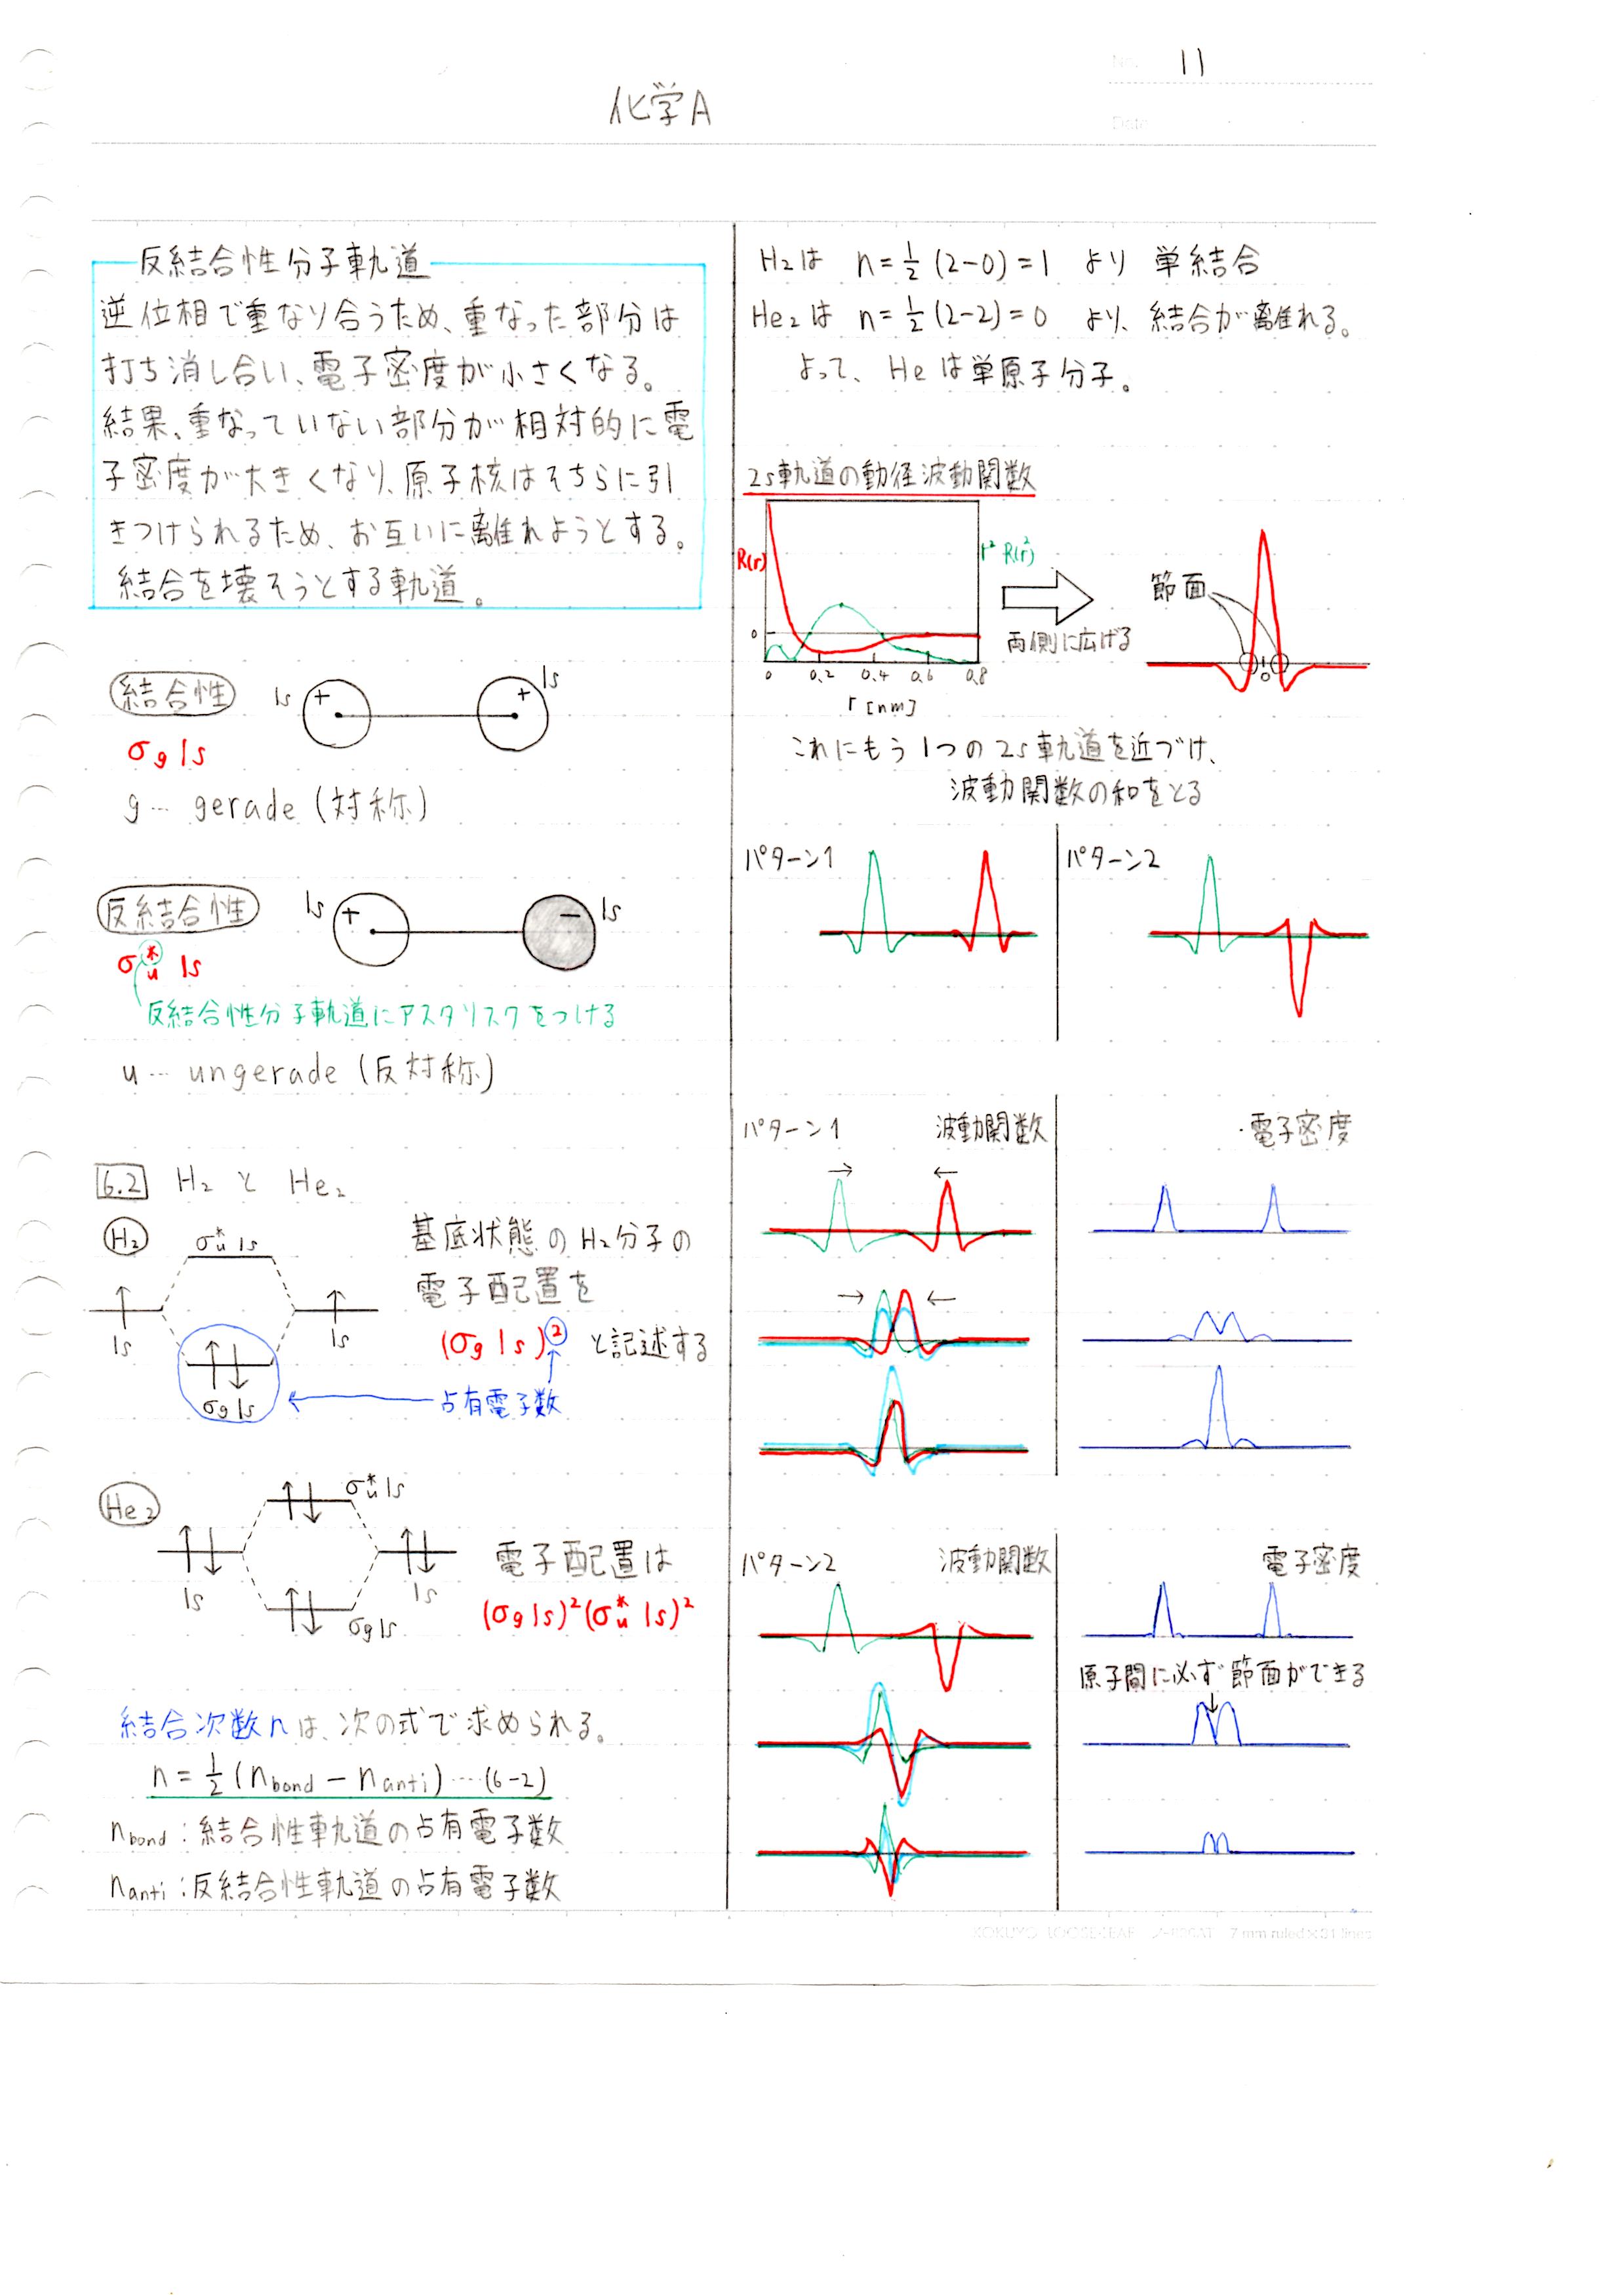 No. 11
化学A
Date
反結合性分子軌道
逆位相で重なり合うため、重なった部分は
打ち消し合い、電子密度が小さくなる。
結果、重なっていない部分が相対的に電
子密度が大きくなり、原子核はそちらに引
きつけられるため、お互いに離れようとする。
結合を壊そうとする軌道。
結合性 1s + + 1s
σg 1s
g… gerade (対称)
反結合性 1s + − 1s
σu* 1s
反結合性分子軌道にアスタリスクをつける
u… ungerade (反対称)
6.2 H₂ と He₂
H₂ σu* 1s
基底状態のH₂分子の
電子配置を
1s 1s
(σg 1s)² と記述する
σg 1s
占有電子数
He₂ σu* 1s
1s 1s
電子配置は
σg 1s
(σg 1s)²(σu* 1s)²
結合次数nは、次の式で求められる。
n = 1/2 (nbond − nanti) … (6-2)
nbond : 結合性軌道の占有電子数
nanti : 反結合性軌道の占有電子数
H₂は n = 1/2 (2−0) = 1 より 単結合
He₂は n = 1/2 (2−2) = 0 より、結合が離れる。
よって、Heは単原子分子。
2s軌道の動径波動関数
R(r) r² R(r)²
節面
両側に広げる
0
0
0 0.2 0.4 0.6 0.8
r [nm]
これにもう1つの2s軌道を近づけ、
波動関数の和をとる
パターン1 パターン2
パターン1 波動関数 電子密度
パターン2 波動関数 電子密度
原子間に必ず節面ができる
KOKUYO LOOSE-LEAF 7 mm ruled×31 lines